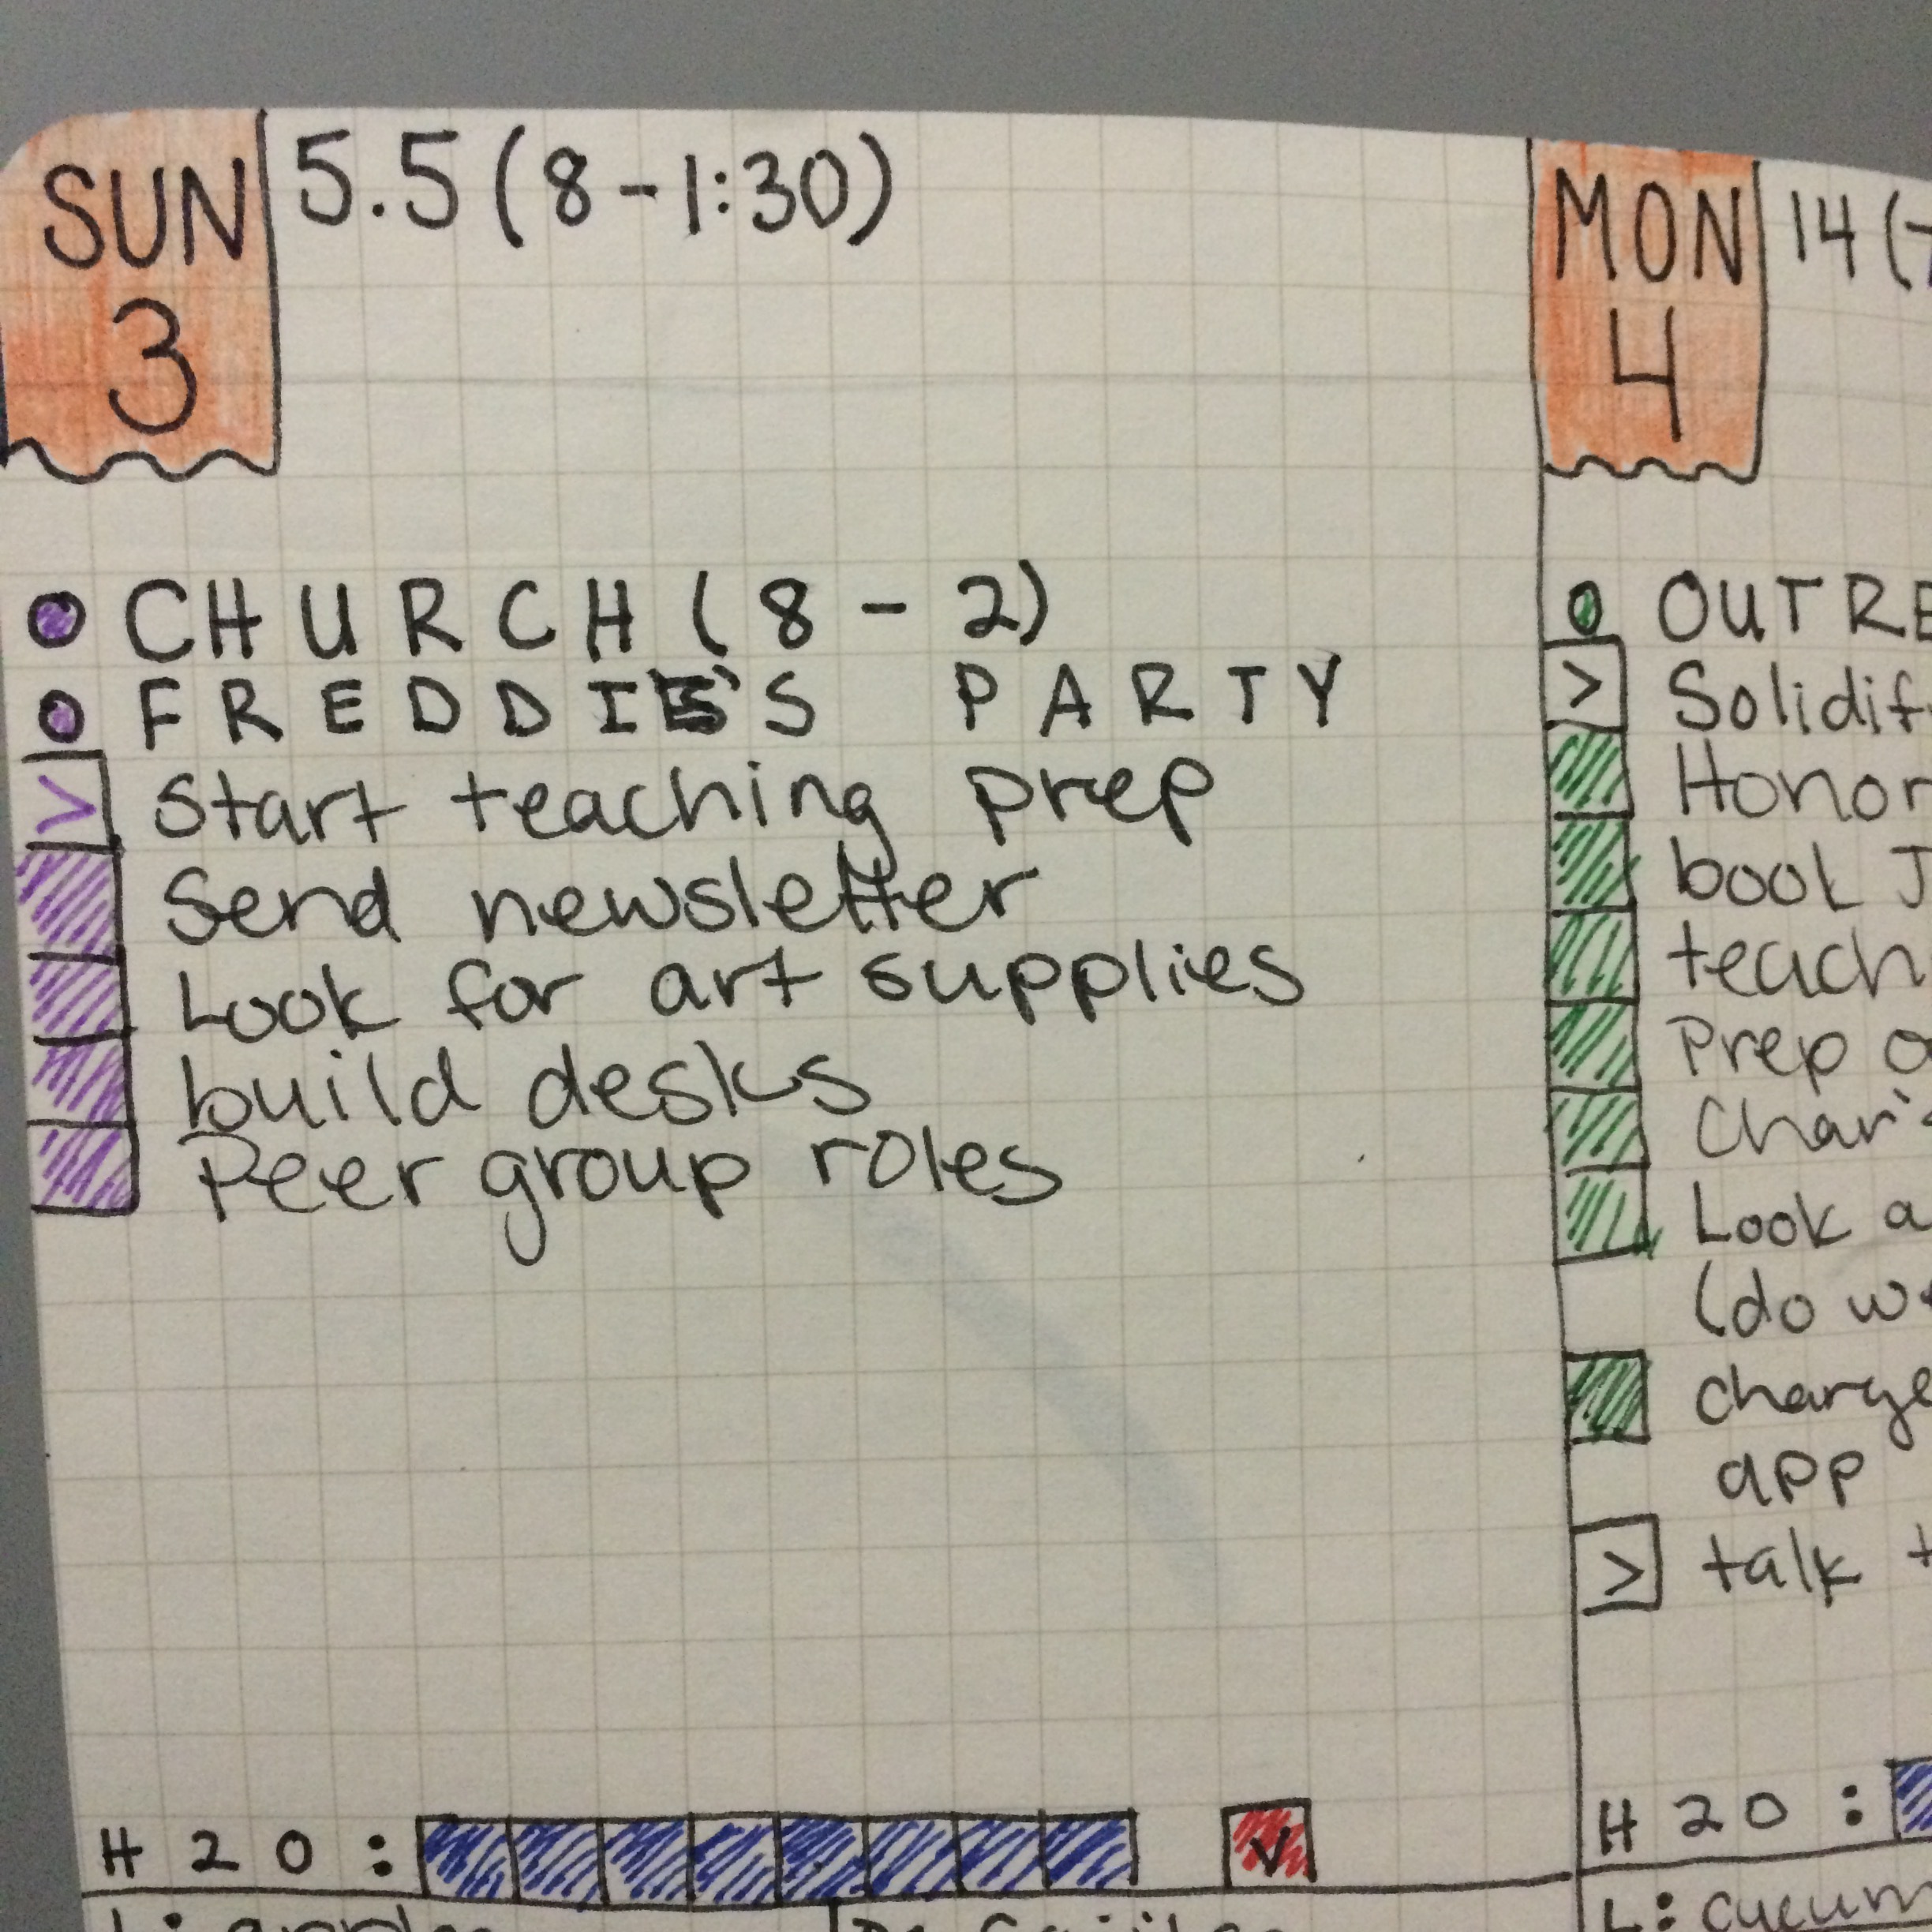 SUN
3
5.5 (8-1:30)
CHURCH (8-2)
FREDDIE'S PARTY
> Start teaching prep
Send newsletter
Look for art supplies
build desks
Peer group roles
H2O:
V
L: apples
MON
4
14 (
OUTRE
> Solidif
Honor
book J
teach
Prep
Char's
Look a
(do we
charge
app
> talk t
H2O:
L: cucum